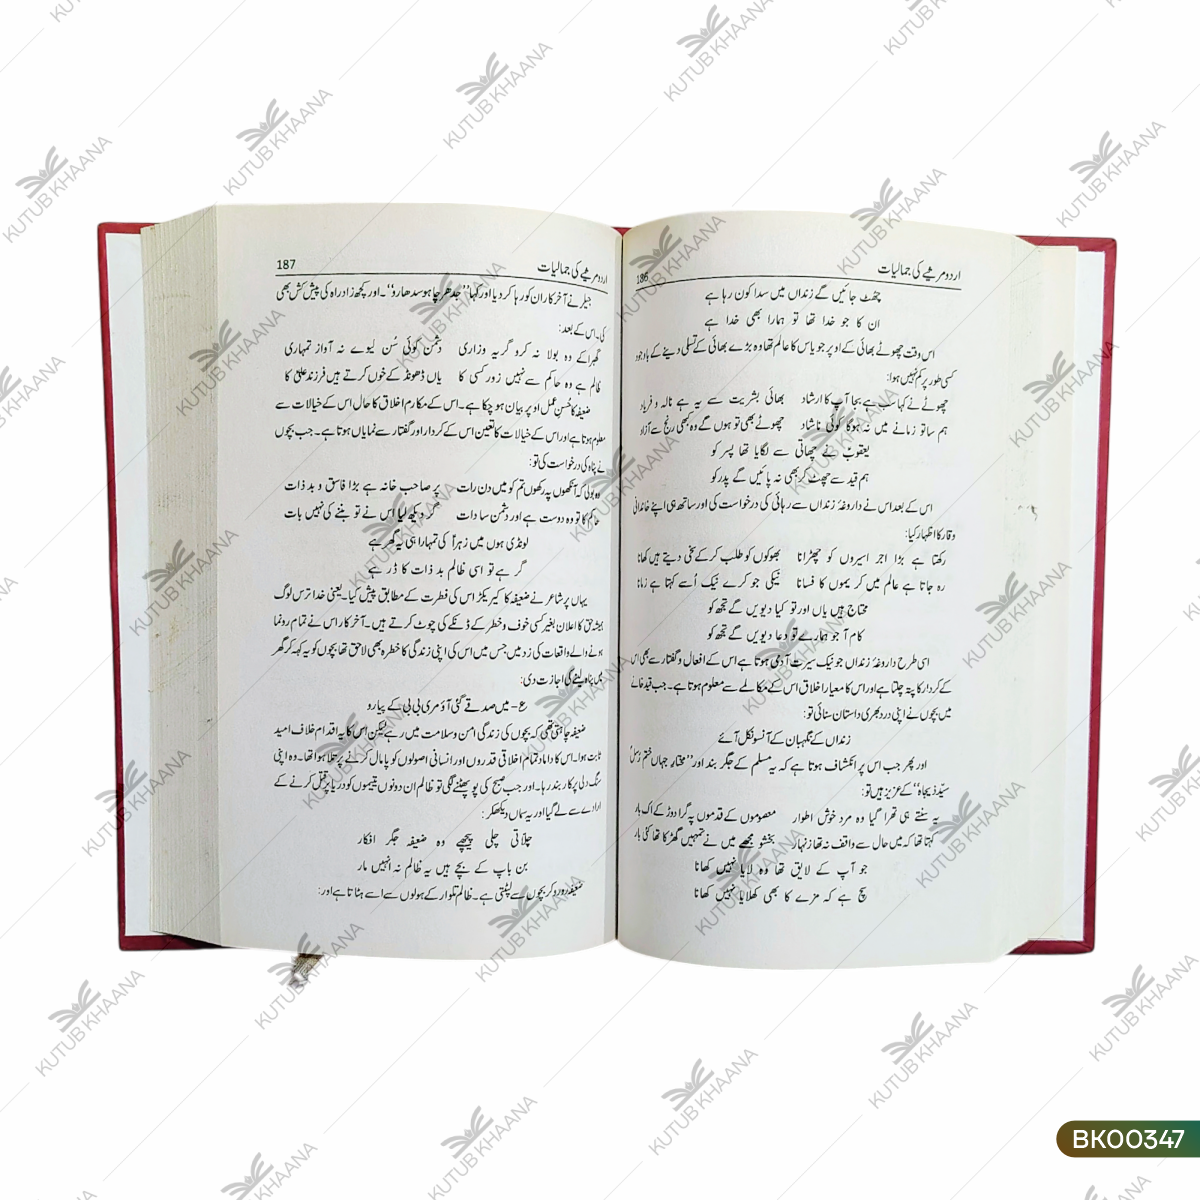 اردو مرثیے کی جمالیات
186
چھٹ جائیں گے زنداں میں سدا کون رہا ہے
ان کا جو خدا تھا تو ہمارا بھی خدا ہے
اس وقت چھوٹے بھائی کے اوپر جو یاس کا عالم تھا وہ بڑے بھائی کے تسلی دینے کے باوجود
کسی طور پر کم نہیں ہوا:
چھوٹے نے کہا سب ہے بجا آپ کا ارشاد بھائی بشریت سے یہ ہے نالہ و فریاد
ہم ساتو زمانے میں نہ ہوگا کوئی ناشاد چھوٹے بھی تو ہوں گے وہ کبھی رنج سے آزاد
یعقوبؑ نے چھاتی سے لگایا تھا پسر کو
ہم قید سے چھٹ کر بھی نہ پائیں گے پدر کو
اس کے بعد اس نے داروغۂ زنداں سے رہائی کی درخواست کی اور ساتھ ہی اپنے خاندانی
وقار کا اظہار کیا:
رکھتا ہے بڑا اجر اسیروں کو چھڑانا بھوکوں کو طلب کر کے سخی دیتے ہیں کھانا
رہ جاتا ہے عالم میں کریموں کا فسانا نیکی جو کرے نیک اُسے کہتا ہے زمانا
محتاج ہیں یاں اور تو کیا دیویں گے تجھ کو
کام آ جو ہمارے تو دعا دیویں گے تجھ کو
اسی طرح داروغۂ زنداں جو نیک سیرت آدمی ہوتا ہے اس کے افعال و گفتار سے بھی اس
کے کردار کا پتہ چلتا ہے اور اس کا معیار اخلاق اس کے مکالمے سے معلوم ہوتا ہے۔ جب قید خانے
میں بچوں نے اپنی درد بھری داستان سنائی تو:
زنداں کے نگہبان کے آنسو نکل آئے
اور پھر جب اس پر انکشاف ہوتا ہے کہ یہ مسلم کے جگر بند اور ”مختار جہاں ختم رسلؐ
سیّد ذیجاہ“ کے عزیز ہیں تو:
یہ سنتے ہی تھرا گیا وہ مرد خوش اطوار معصوموں کے قدموں پہ گرا دوڑ کے اک بار
کہتا تھا کہ میں حال سے واقف نہ تھا زنہار بخشو مجھے میں نے تمہیں گھڑکا تھا کئی بار
جو آپ کے لایق تھا وہ لایا نہیں کھانا
سچ ہے کہ مزے کا بھی کھلایا نہیں کھانا
اردو مرثیے کی جمالیات
187
جیلر نے آخر کار ان کو رہا کر دیا اور کہا ”جدھر چاہو سدھارو“۔ اور کچھ زاد راہ کی پیش کش بھی
کی۔ اس کے بعد:
گھبرا کے وہ بولا نہ کرو گریہ و زاری دشمن کوئی سُن لیوے نہ آواز تمہاری
ظالم ہے وہ حاکم سے نہیں زور کسی کا یاں ڈھونڈ کے خوں کرتے ہیں فرزند علیؑ کا
ضعیفہ کا حُسنِ عمل اوپر بیان ہو چکا ہے۔ اس کے مکارم اخلاق کا حال اس کے خیالات سے
معلوم ہوتا ہے اور اس کے خیالات کا تعین اس کے کردار اور گفتار سے نمایاں ہوتا ہے۔ جب بچوں
نے پناہ کی درخواست کی تو:
وہ بولی کہ آنکھوں پہ رکھوں تم کو میں دن رات پر صاحب خانہ ہے بڑا فاسق و بد ذات
حاکم کا تو وہ دوست ہے اور دشمن سادات دیکھ لیا اس نے تو بننے کی نہیں بات
لونڈی ہوں میں زہراؑ کی تمہارا ہی یہ گھر ہے
گر ہے تو اسی ظالم بد ذات کا ڈر ہے
یہاں پر شاعر نے ضعیفہ کا کیریکٹر اس کی فطرت کے مطابق پیش کیا۔ یعنی خدا ترس لوگ
ہمیشہ حق کا اعلان بغیر کسی خوف و خطر کے ڈنکے کی چوٹ کرتے ہیں۔ آخر کار اس نے تمام رونما
ہونے والے واقعات کی زد میں جس میں اس کی اپنی زندگی کا خطرہ بھی لاحق تھا بچوں کو یہ کہہ کر گھر
میں پناہ لینے کی اجازت دی:
ع۔ میں صدقے گئی آؤ مری بی بی کے پیارو
ضعیفہ چاہتی تھی کہ بچوں کی زندگی امن و سلامت میں رہے لیکن اس کا یہ اقدام خلاف امید
ثابت ہوا۔ اس کا داماد تمام اخلاقی قدروں اور انسانی اصولوں کو پامال کرنے پر تلا ہوا تھا۔ وہ اپنی
سنگ دلی پر کاربند رہا۔ اور جب صبح کی پو پھٹنے لگی تو ظالم ان دونوں یتیموں کو دریا پر قتل کرنے کے
ارادے سے لے گیا اور یہ سماں دیکھ کر:
چلاتی چلی پیچھے وہ ضعیفہ جگر افگار
بن باپ کے بچے ہیں یہ ظالم نہ انہیں مار
ضعیفہ رو رو کر بچوں سے لپٹتی ہے۔ ظالم تلوار کے ہولوں سے اسے ہٹاتا ہے اور:
KUTUB KHAANA
BK00347